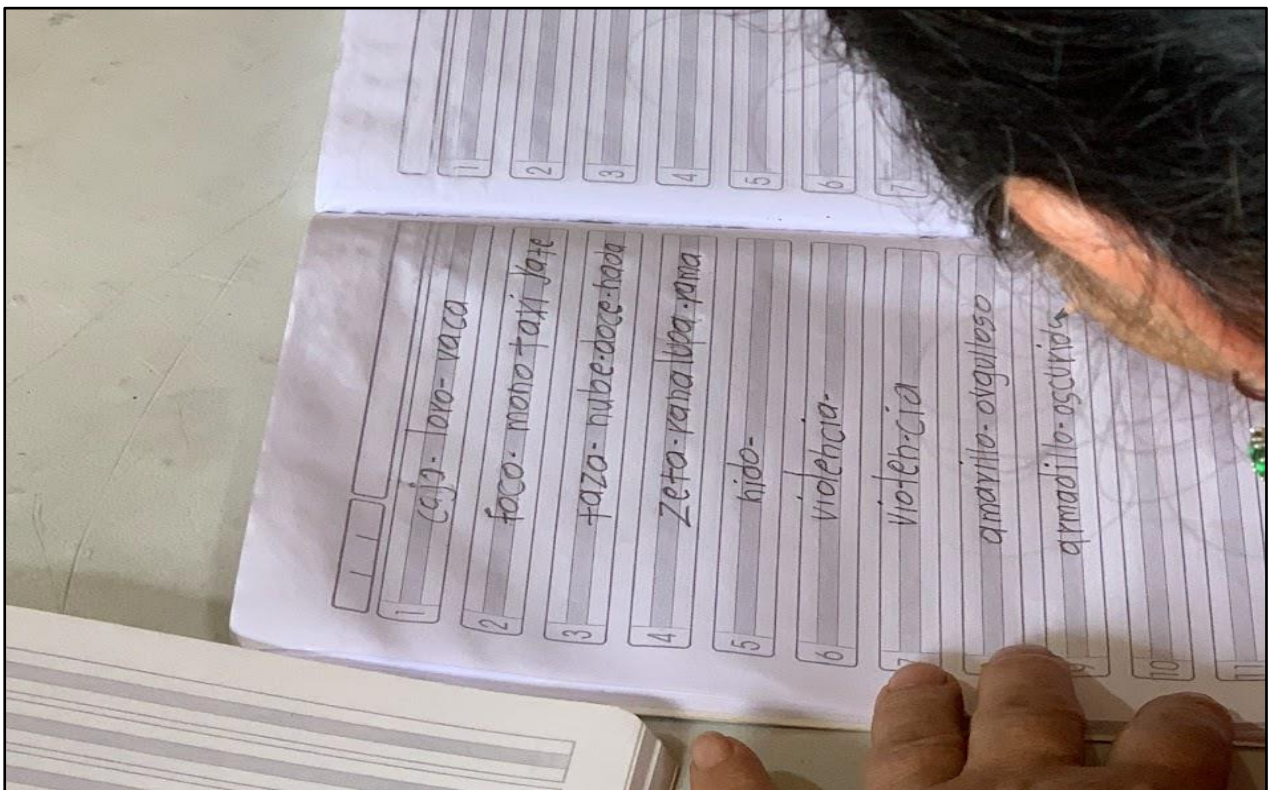 1
2
3
4
5
6
7
1 caja- loro- vaca
2 foco- mono-taxi yate
3 taza- nube-doce-hada
4 zeta-rana lupa-rama
5 nido-
6 violencia-
7 violen-cia
amarillo-orgulloso
9 armadillo-oscurida
10
11